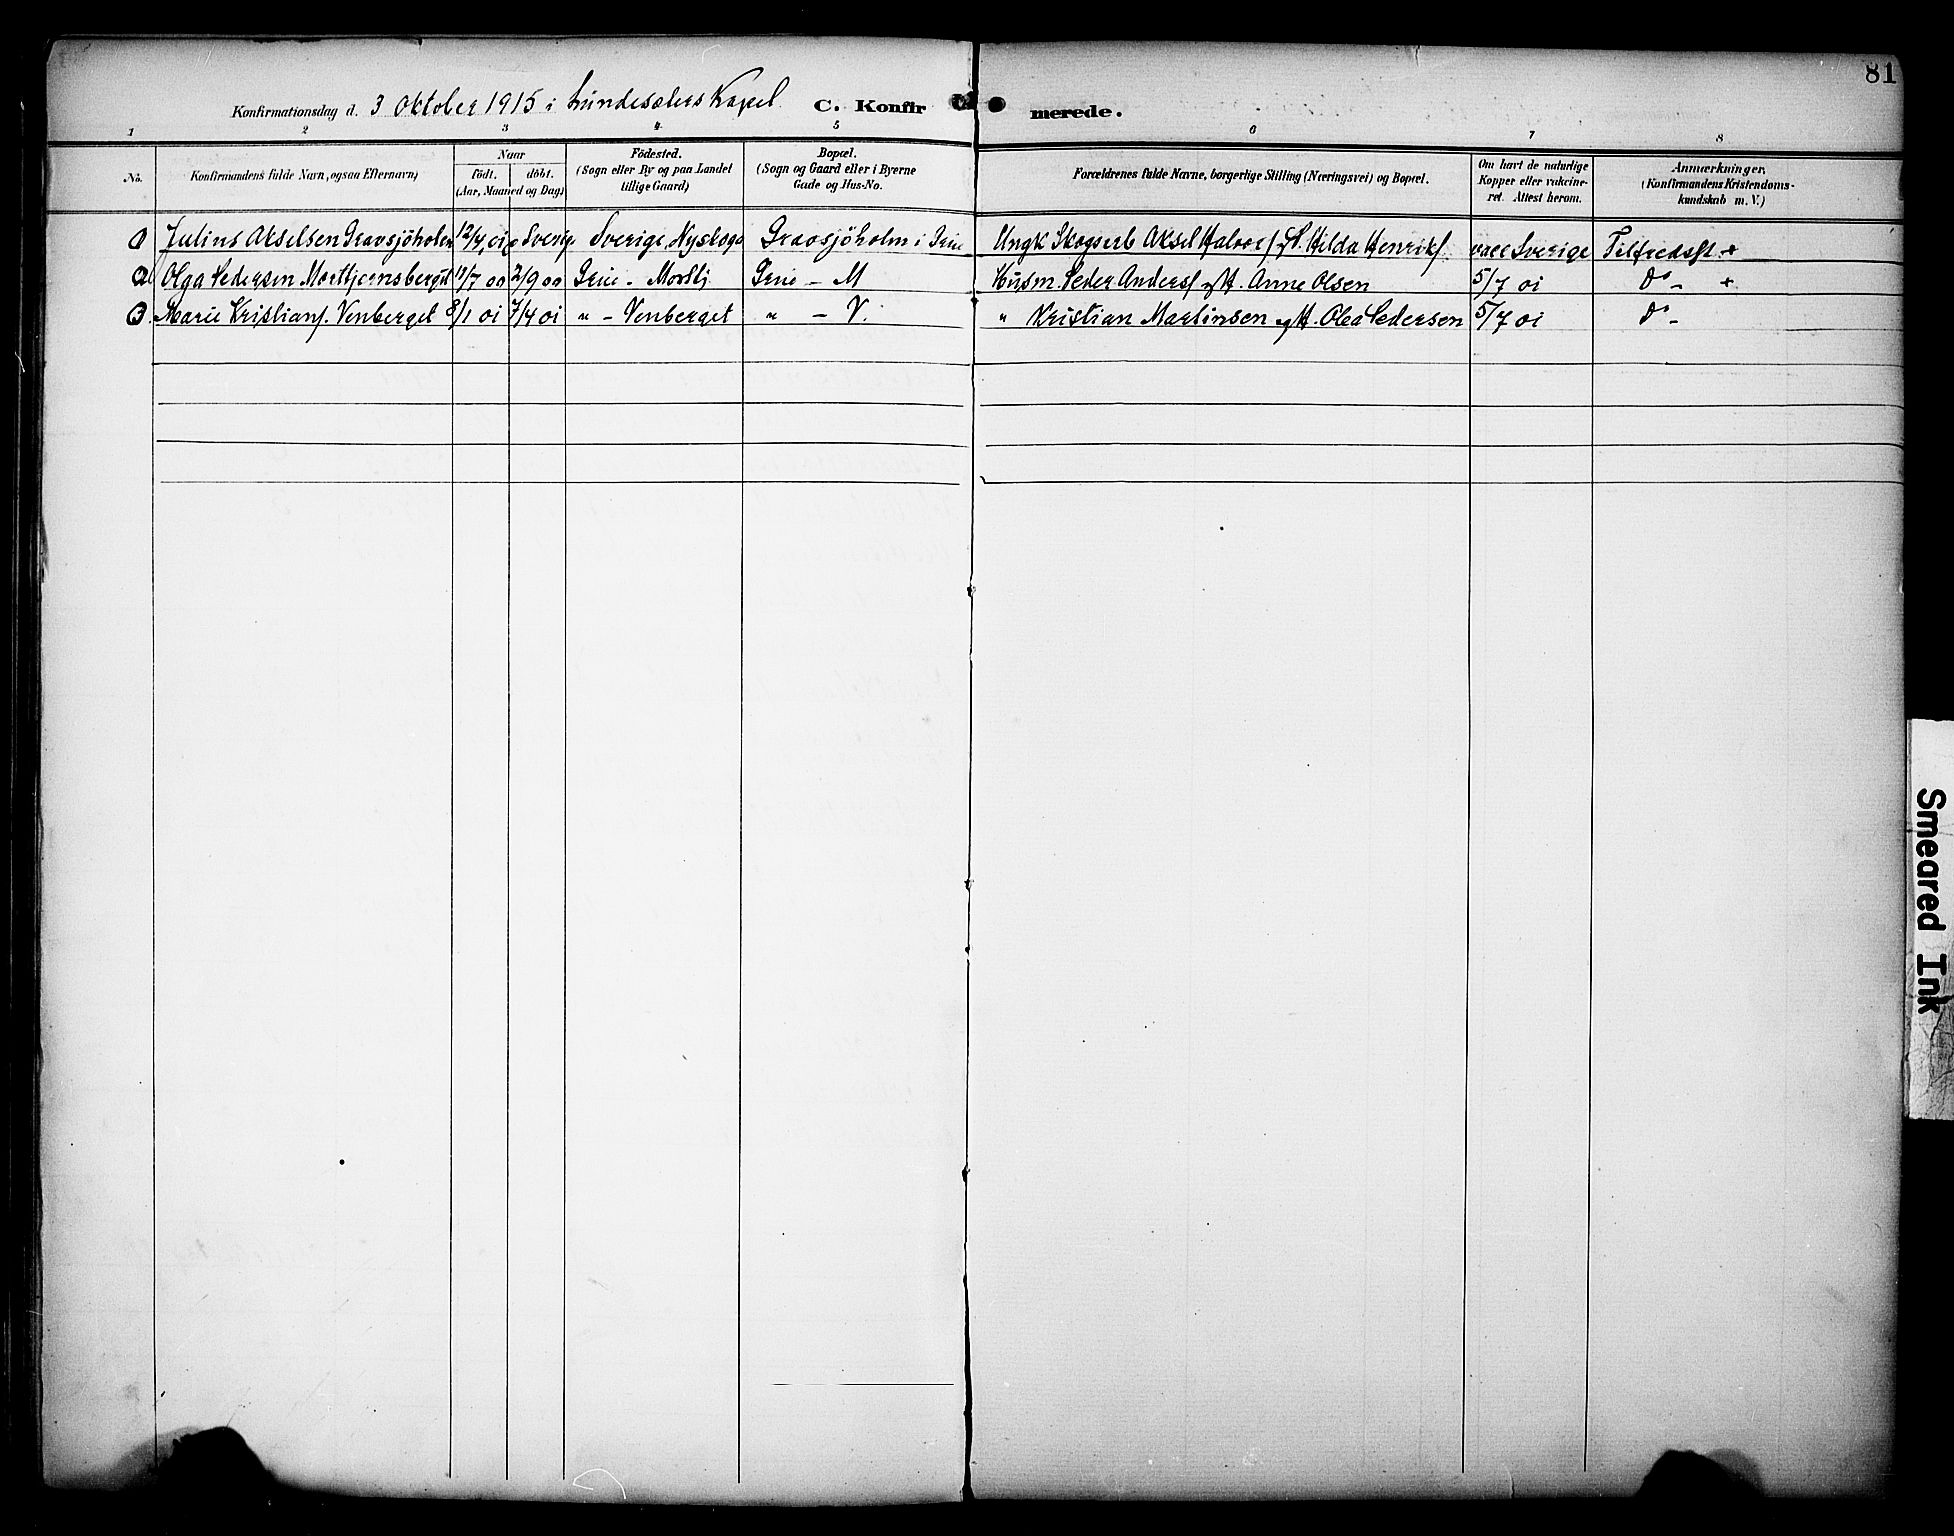 81
Konfirmationsdag d. 3 Oktober 1915 i Lundesæters Kapel C. Konfirmerede.
1 2 3 4 5 6 7 8
No.
Konfirmandens fulde Navn, ogsaa Efternavn)
Naar
födt. döbt.
(Aar, Maaned og Dag)
Födested.
(Sogn eller By og paa Landet
tillige Gaard)
Bopæl.
(Sogn og Gaard eller i Byerne
Gade og Hus-No.
Forældrenes fulde Navne, borgerlige Stilling (Næringsvei) og Bopæl.
Om havt de naturlige
Kopper eller vakcine-
ret. Attest herom.
Anmærkninger,
(Konfirmandens Kristendoms-
kundskab m. V.)
1 Julius Akselsen Gravsjöholm 12/4 01 Sverige Sverige, Nyskoga Gravsjöholm i Grue Ungk Skogsarb Aksel Halvors. og P. Hilda Henriks. vacc Sverige Tilfredsst +
2 Olga Pedersen Morttjernsberget 11/7 00 2/9 00 Grue - Morttj. Grue - M Husm. Peder Anders. og H. Anne Olsen 5/7 01 Do - +
3. Marie Kristians. Venberget 8/1 01 7/4 01 " - Venberget " - V. " Kristian Martinsen og H. Olea Pedersen 5/7 01 Do -
Smeared Ink